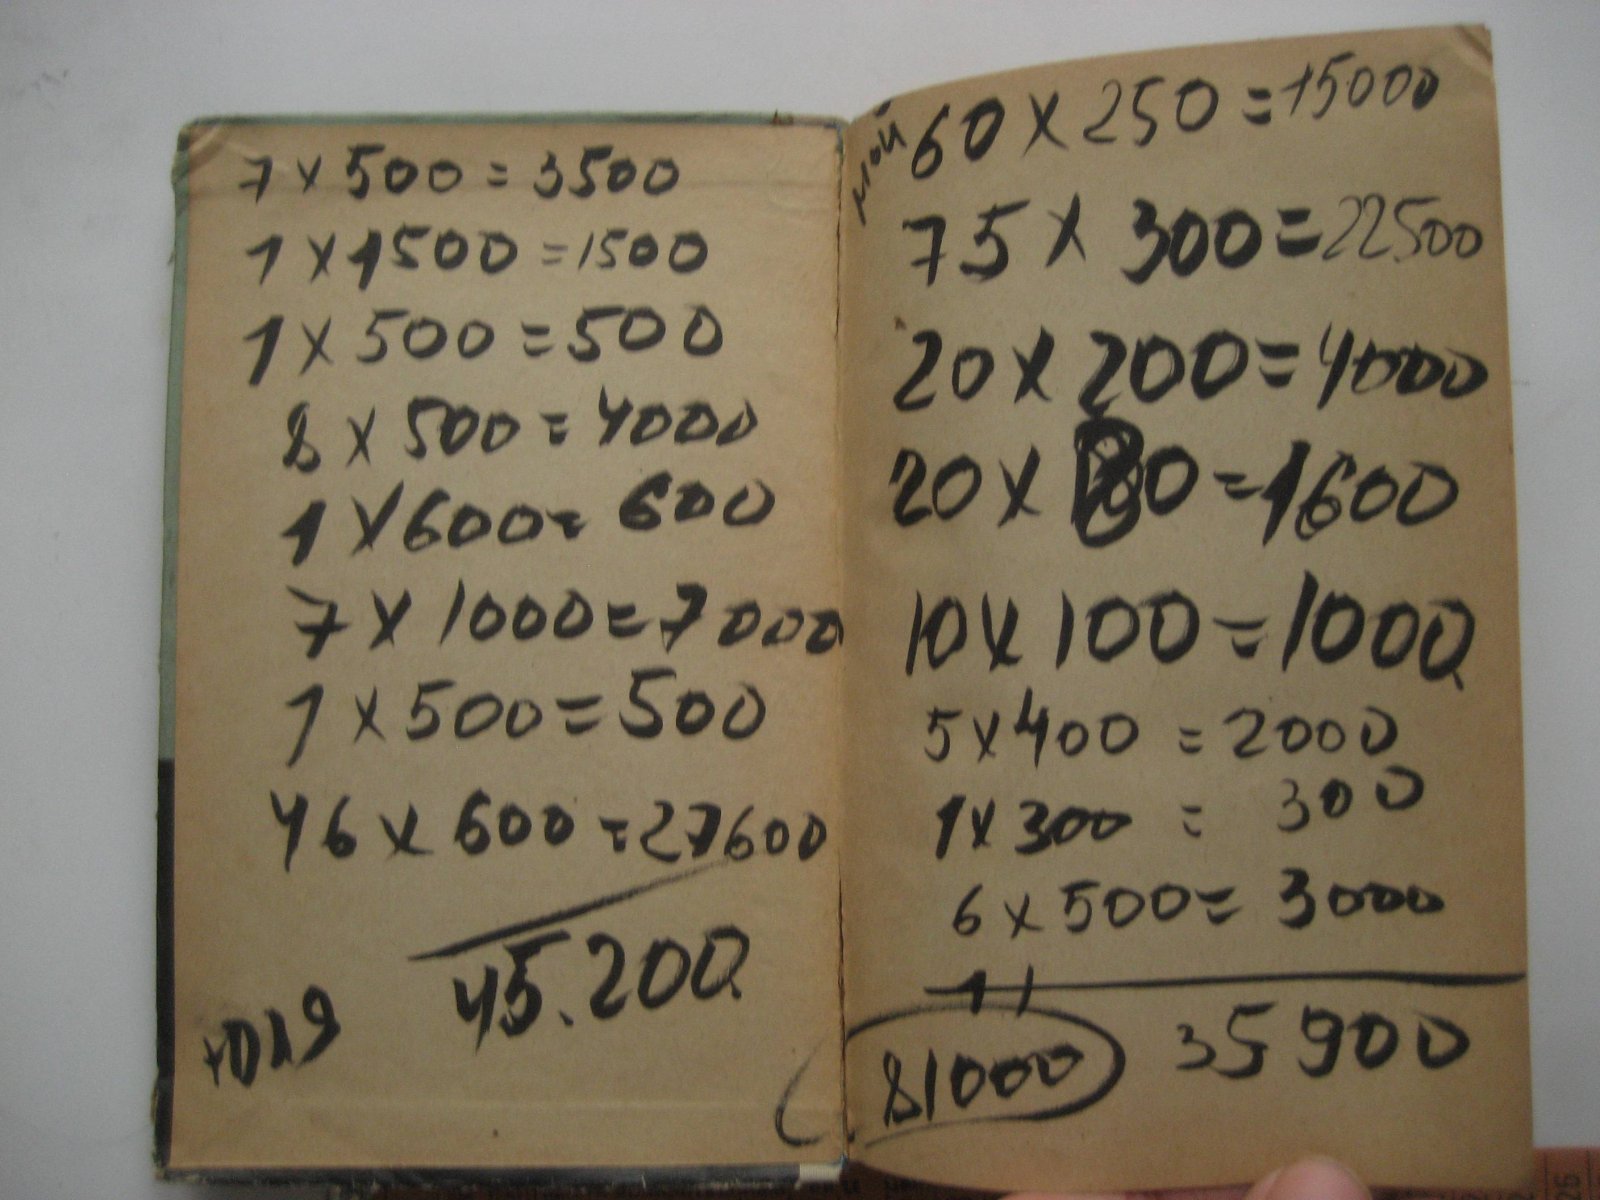 7 x 500 = 3500
1 x 1500 = 1500
1 x 500 = 500
8 x 500 = 4000
1 x 600 = 600
7 x 1000 = 7000
1 x 500 = 500
46 x 600 = 27600
45.200
Мой
60 x 250 = 15000
75 x 300 = 22500
20 x 200 = 4000
20 x 80 = 1600
10 x 100 = 1000
5 x 400 = 2000
1 x 300 = 300
6 x 500 = 3000
35900
81000